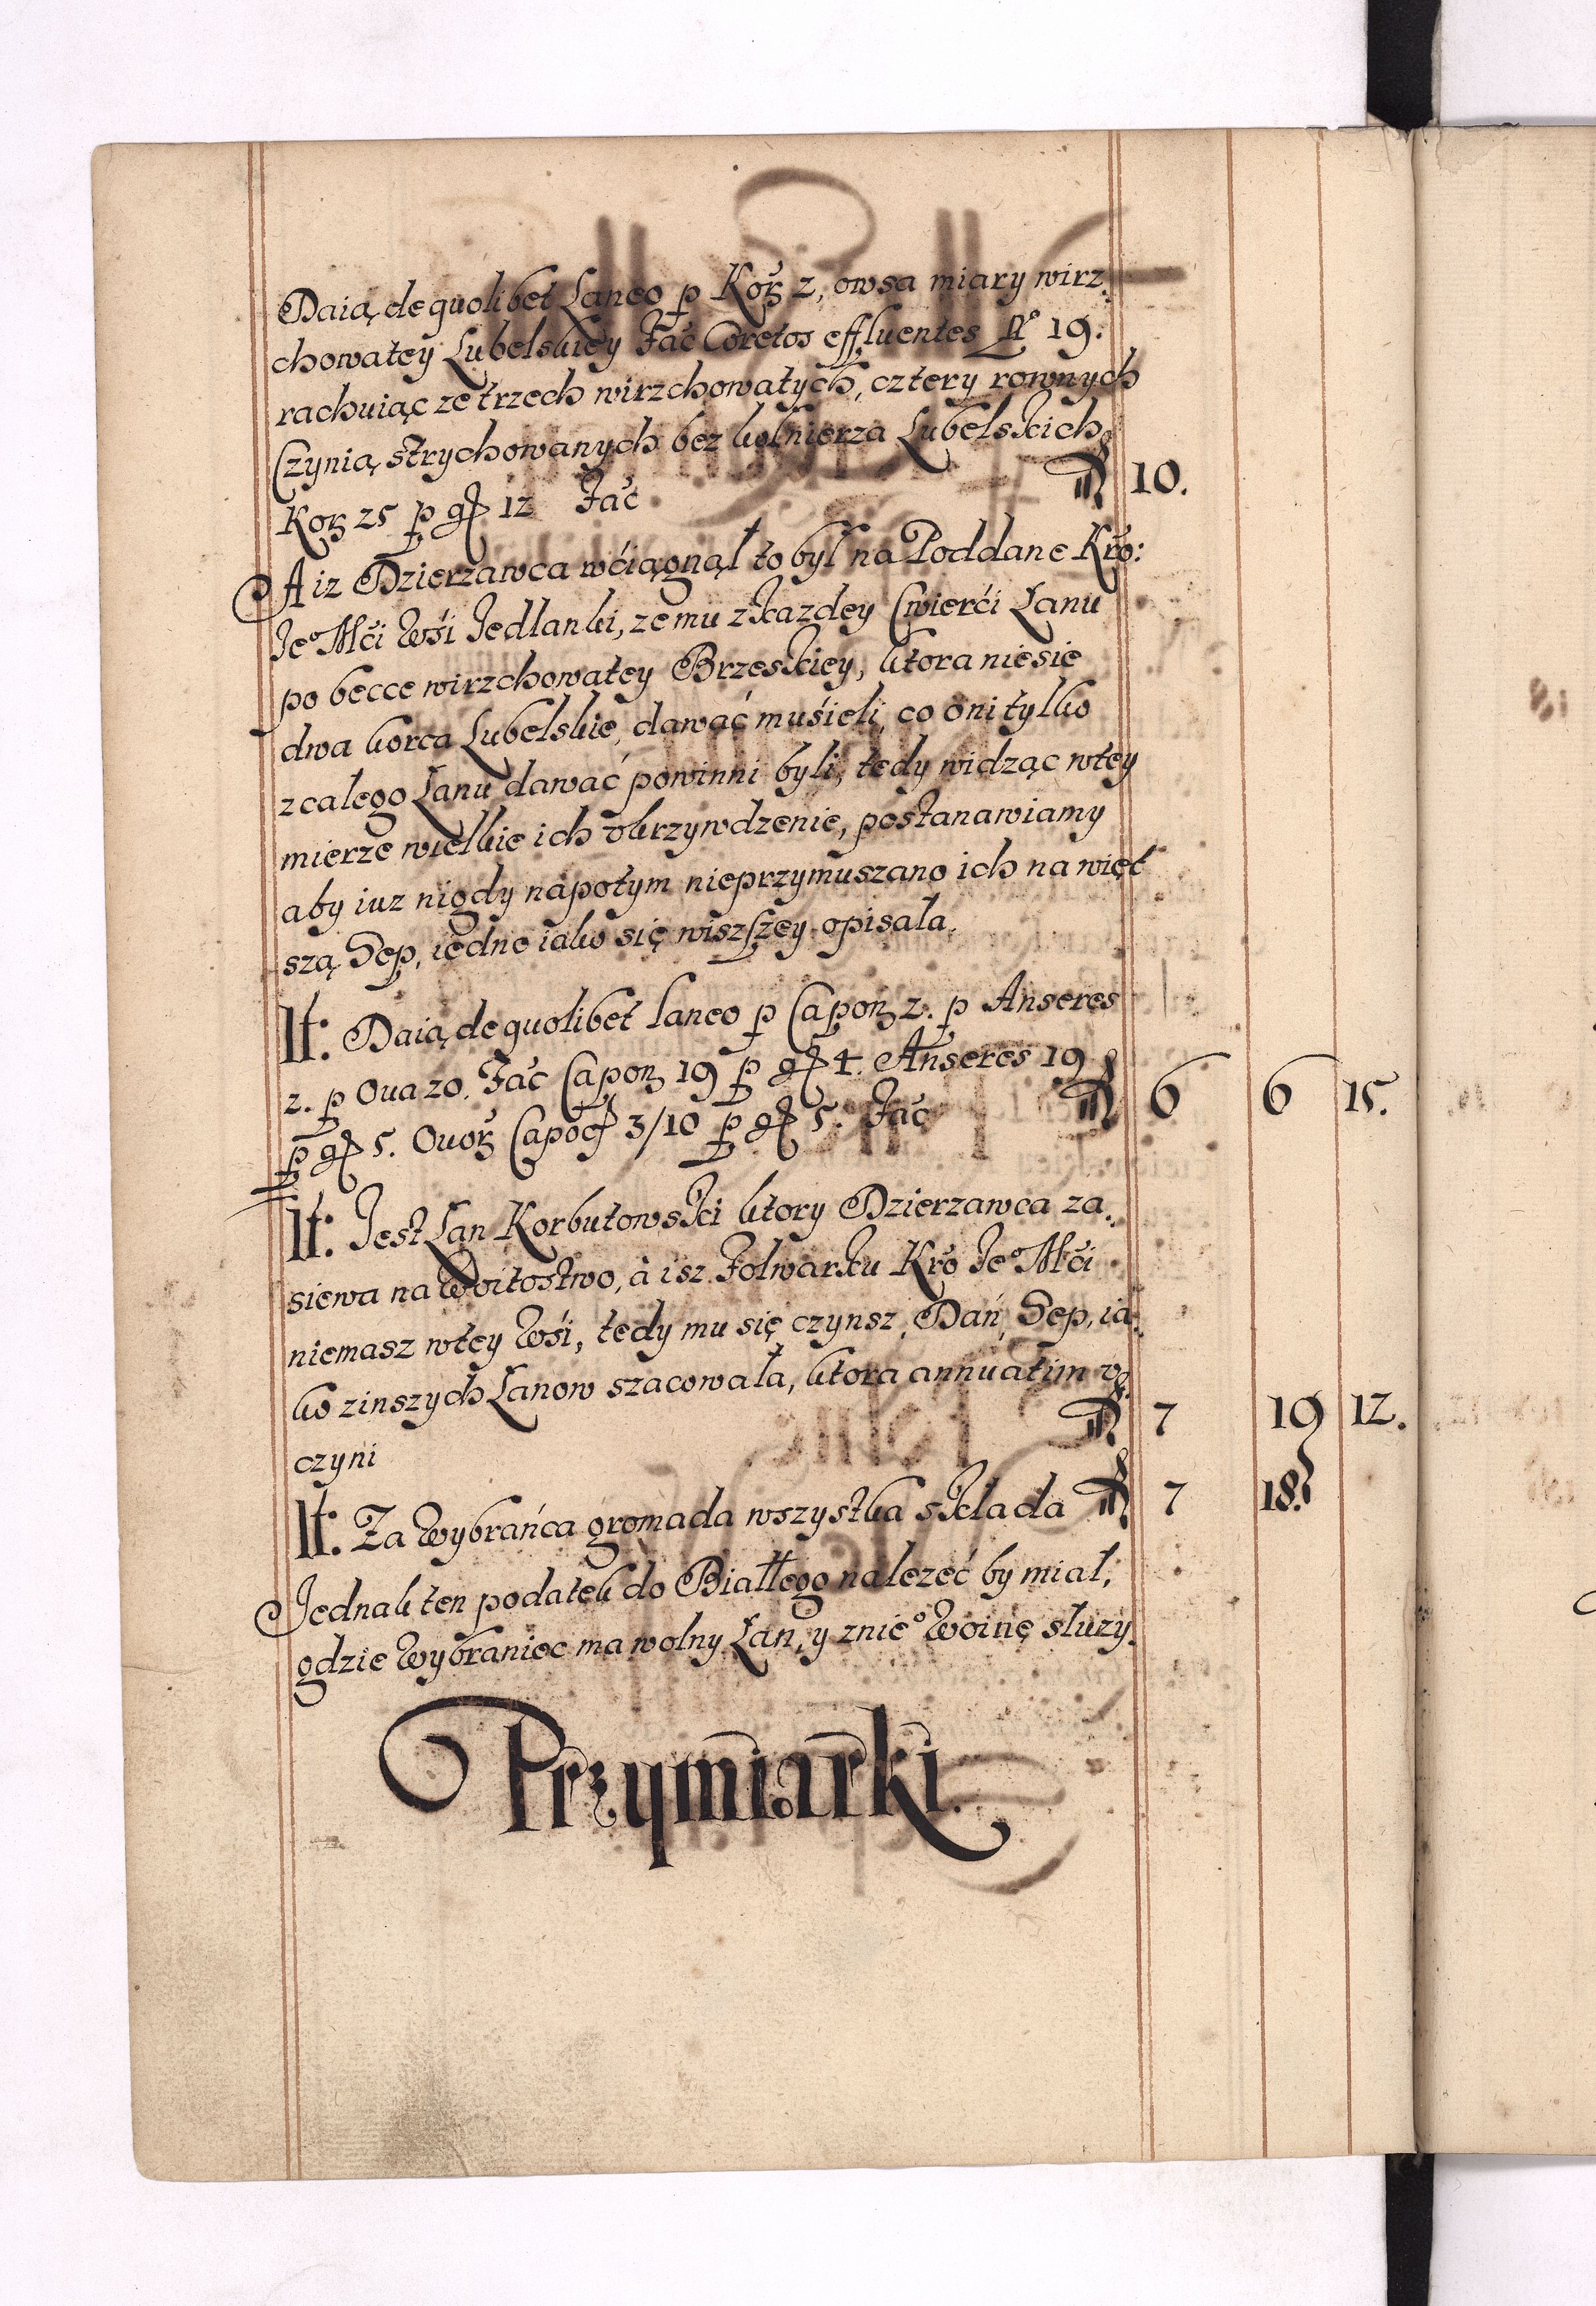 Daią de quolibet Laneo p Korz 2, owsa miary wirz
chowatey Lubelskiey Fac̃ Coretos effluentes Nº 19.
rachuiąc ze trzech wirzchowatych, cztery rownych
Czynią strychowanych bez kołnierza Lubelskich
Korz 25 p gr 12 Fac̃ 10.
A iz Dzierzawca wciągnął to był na Poddane Kro:
Jeº Mći Wśi Jedlanki, ze mu z kazdey Cwierći Łanu
po becce wirzchowatey Brzeskiey, ktora niesie
dwa korca Lubelskie, dawać muśieli, co oni tylko
z calego Łanu dawać powinni byli, tedy widząc wtey
mierze wielkie ich vkrzywdzenie, postanawiamy
aby iuz nigdy napotym nieprzymuszano ich na więt
szą Sep, iedno iako się wiszszey opisała.
It: Daią de quolibet laneo p Capon 2. p Anseres
2. p Oua 20. Fac̃ Capon 19 p gr 4. Anseres 19
p gr 5. Ouor Capocz 3/10 p gr 5. Fac̃ 6 6 15.
It: Jest Łan Korbutowski ktory Dzierzawca za
siewa na Woitostwo, à isz Folwarku Kro Jeº Mći
niemasz wtey Wśi, tedy mu się czynsz, Dań, Sep, ia
ko z inszych Łanow szacowała, ktora annuatim v
czyni 7 19 12.
It: Za Wybrańca gromada wszystka sklada 7 18.
Jednak ten podatek do Białłego nalezeć by miał,
gdzie Wybraniec ma wolny Łan, y znieº Woinę słuzy.
Przymiarki.